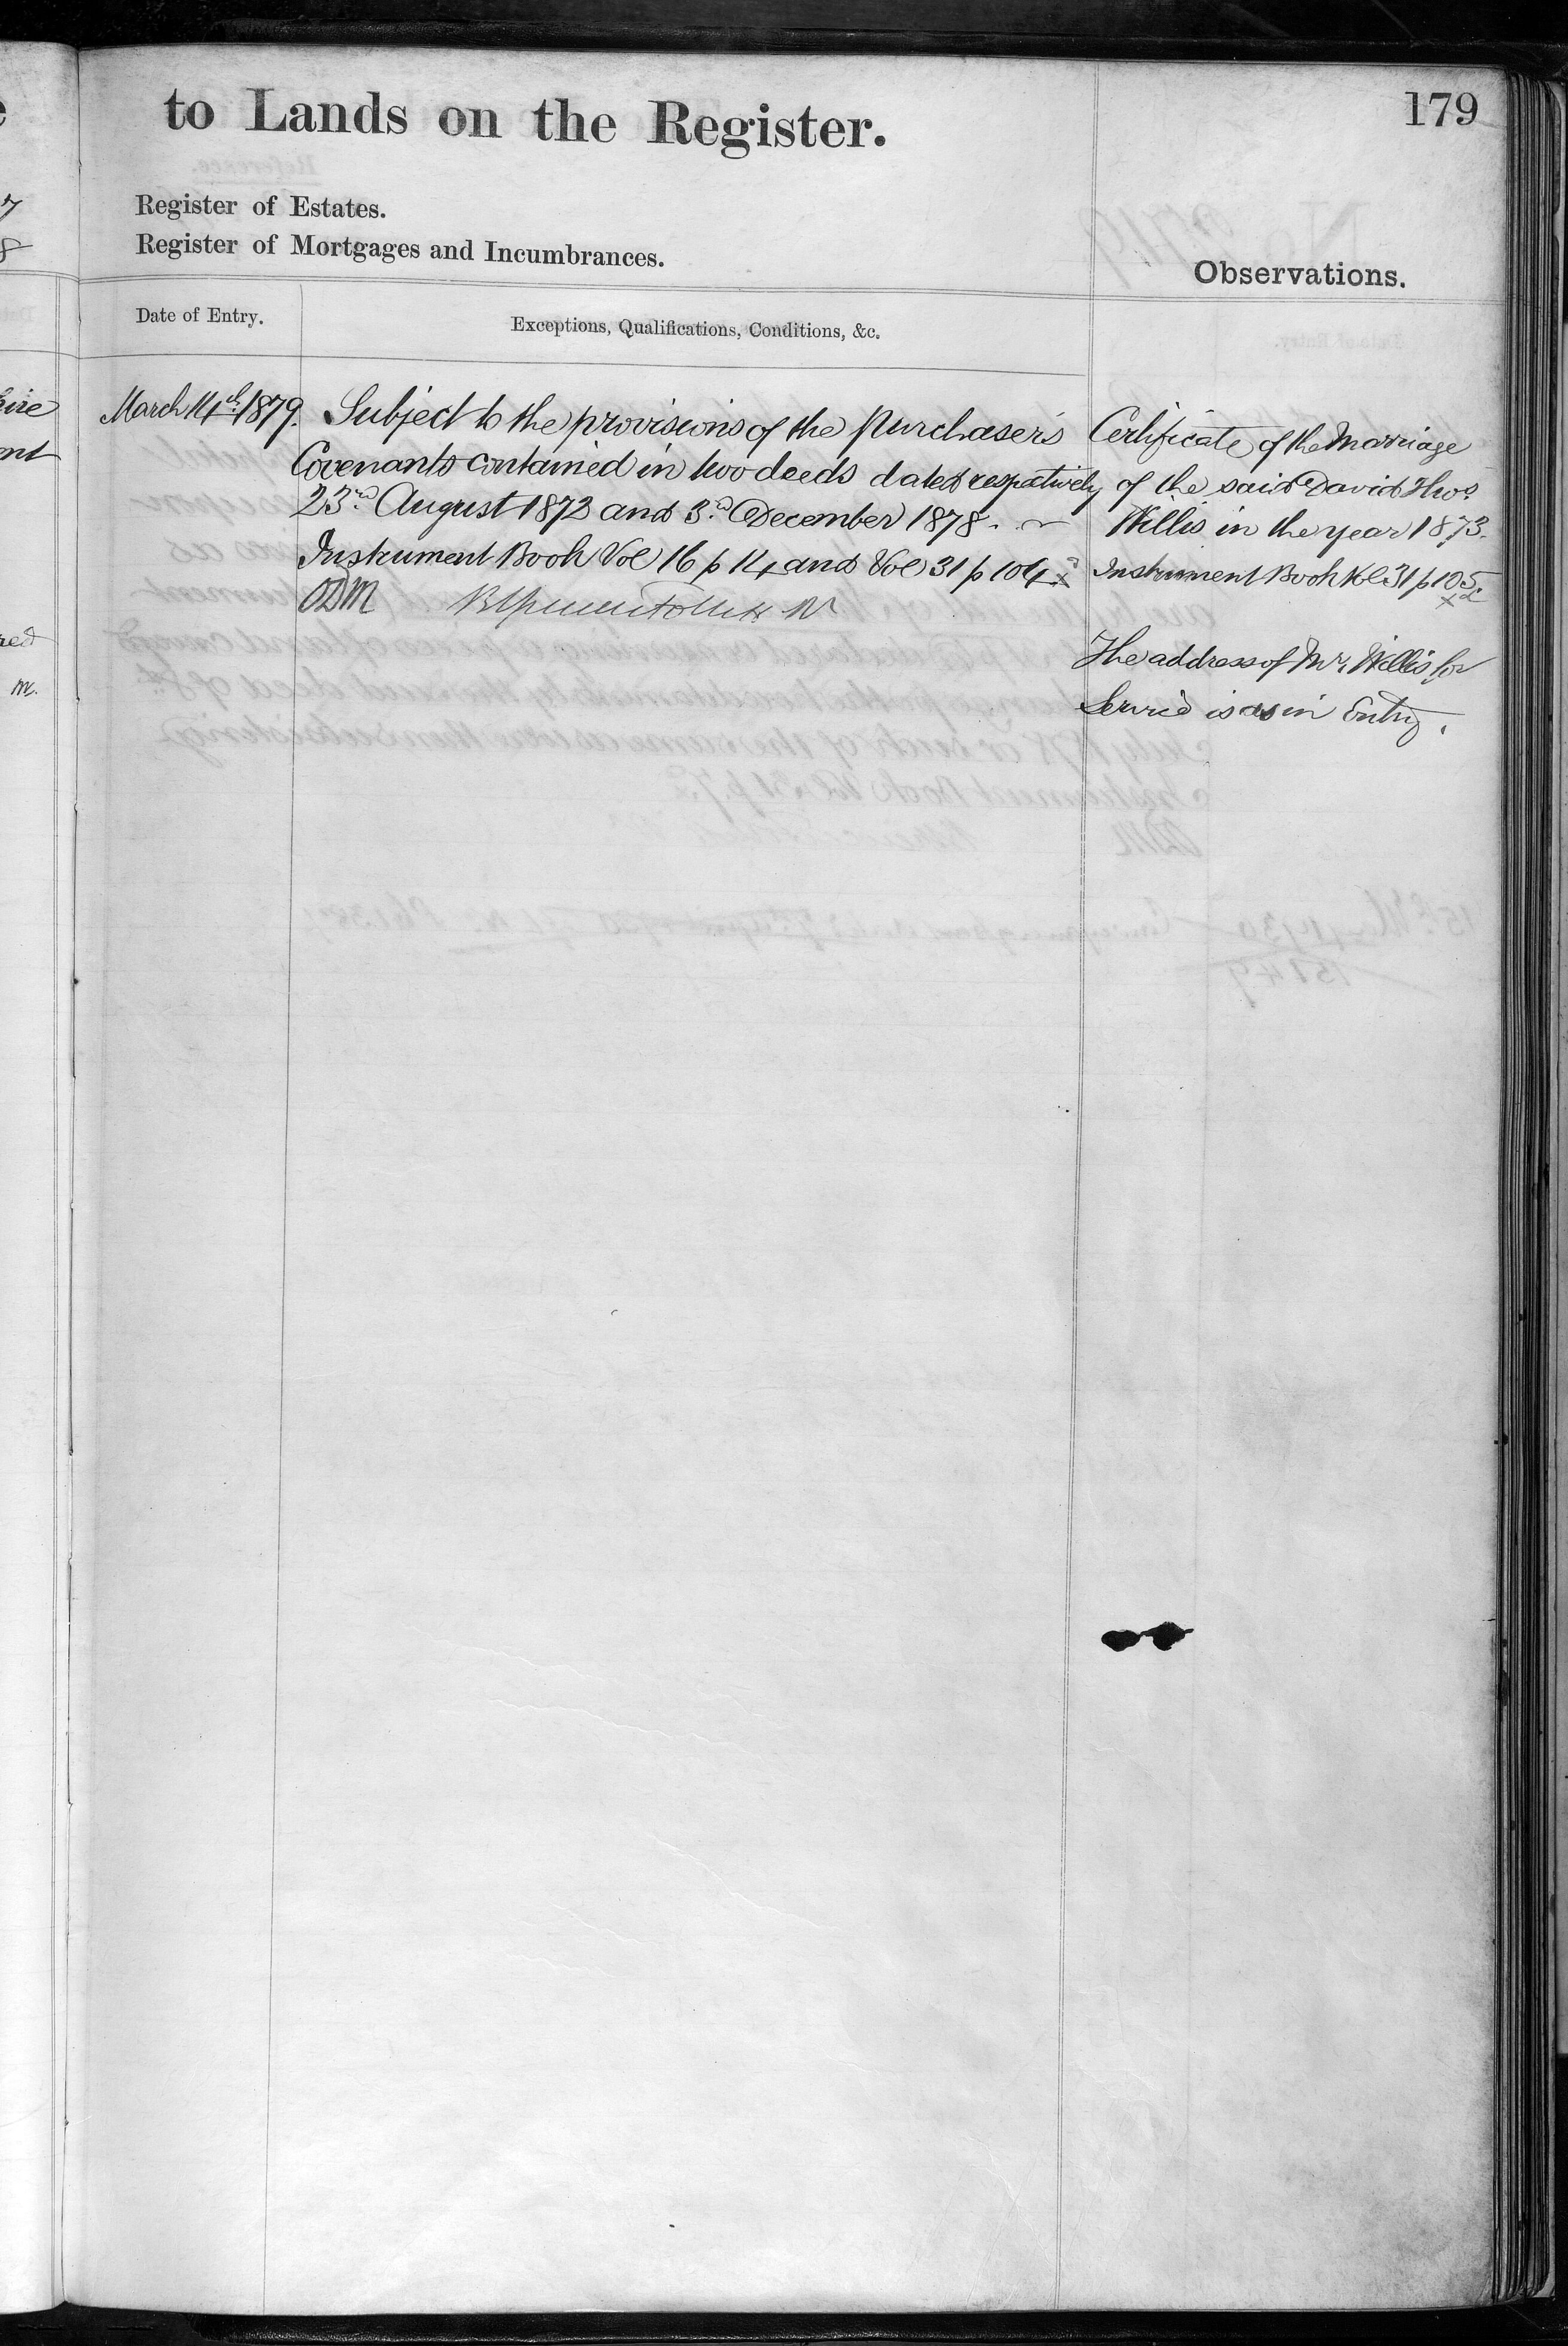 to Lands on the Register.
179
Register of Estates.
Register of Mortgages and Incumbrances.
Observations.
Date of Entry.
Exceptions, Qualifications, Conditions, &c.
March 14th 1879.
Subject to the provisions of the Purchaser's
Covenants contained in two deeds dated respectively
23rd August 1872 and 3rd December 1878.
Instrument Book Vol 16 p 14 and Vol 31 p 104
ODM
Certificate of the Marriage
of the said David Thos
Willis in the year 1873.
Instrument Book Vol 31 p 105
The address of Mr Willis for
Service is as in Entry.